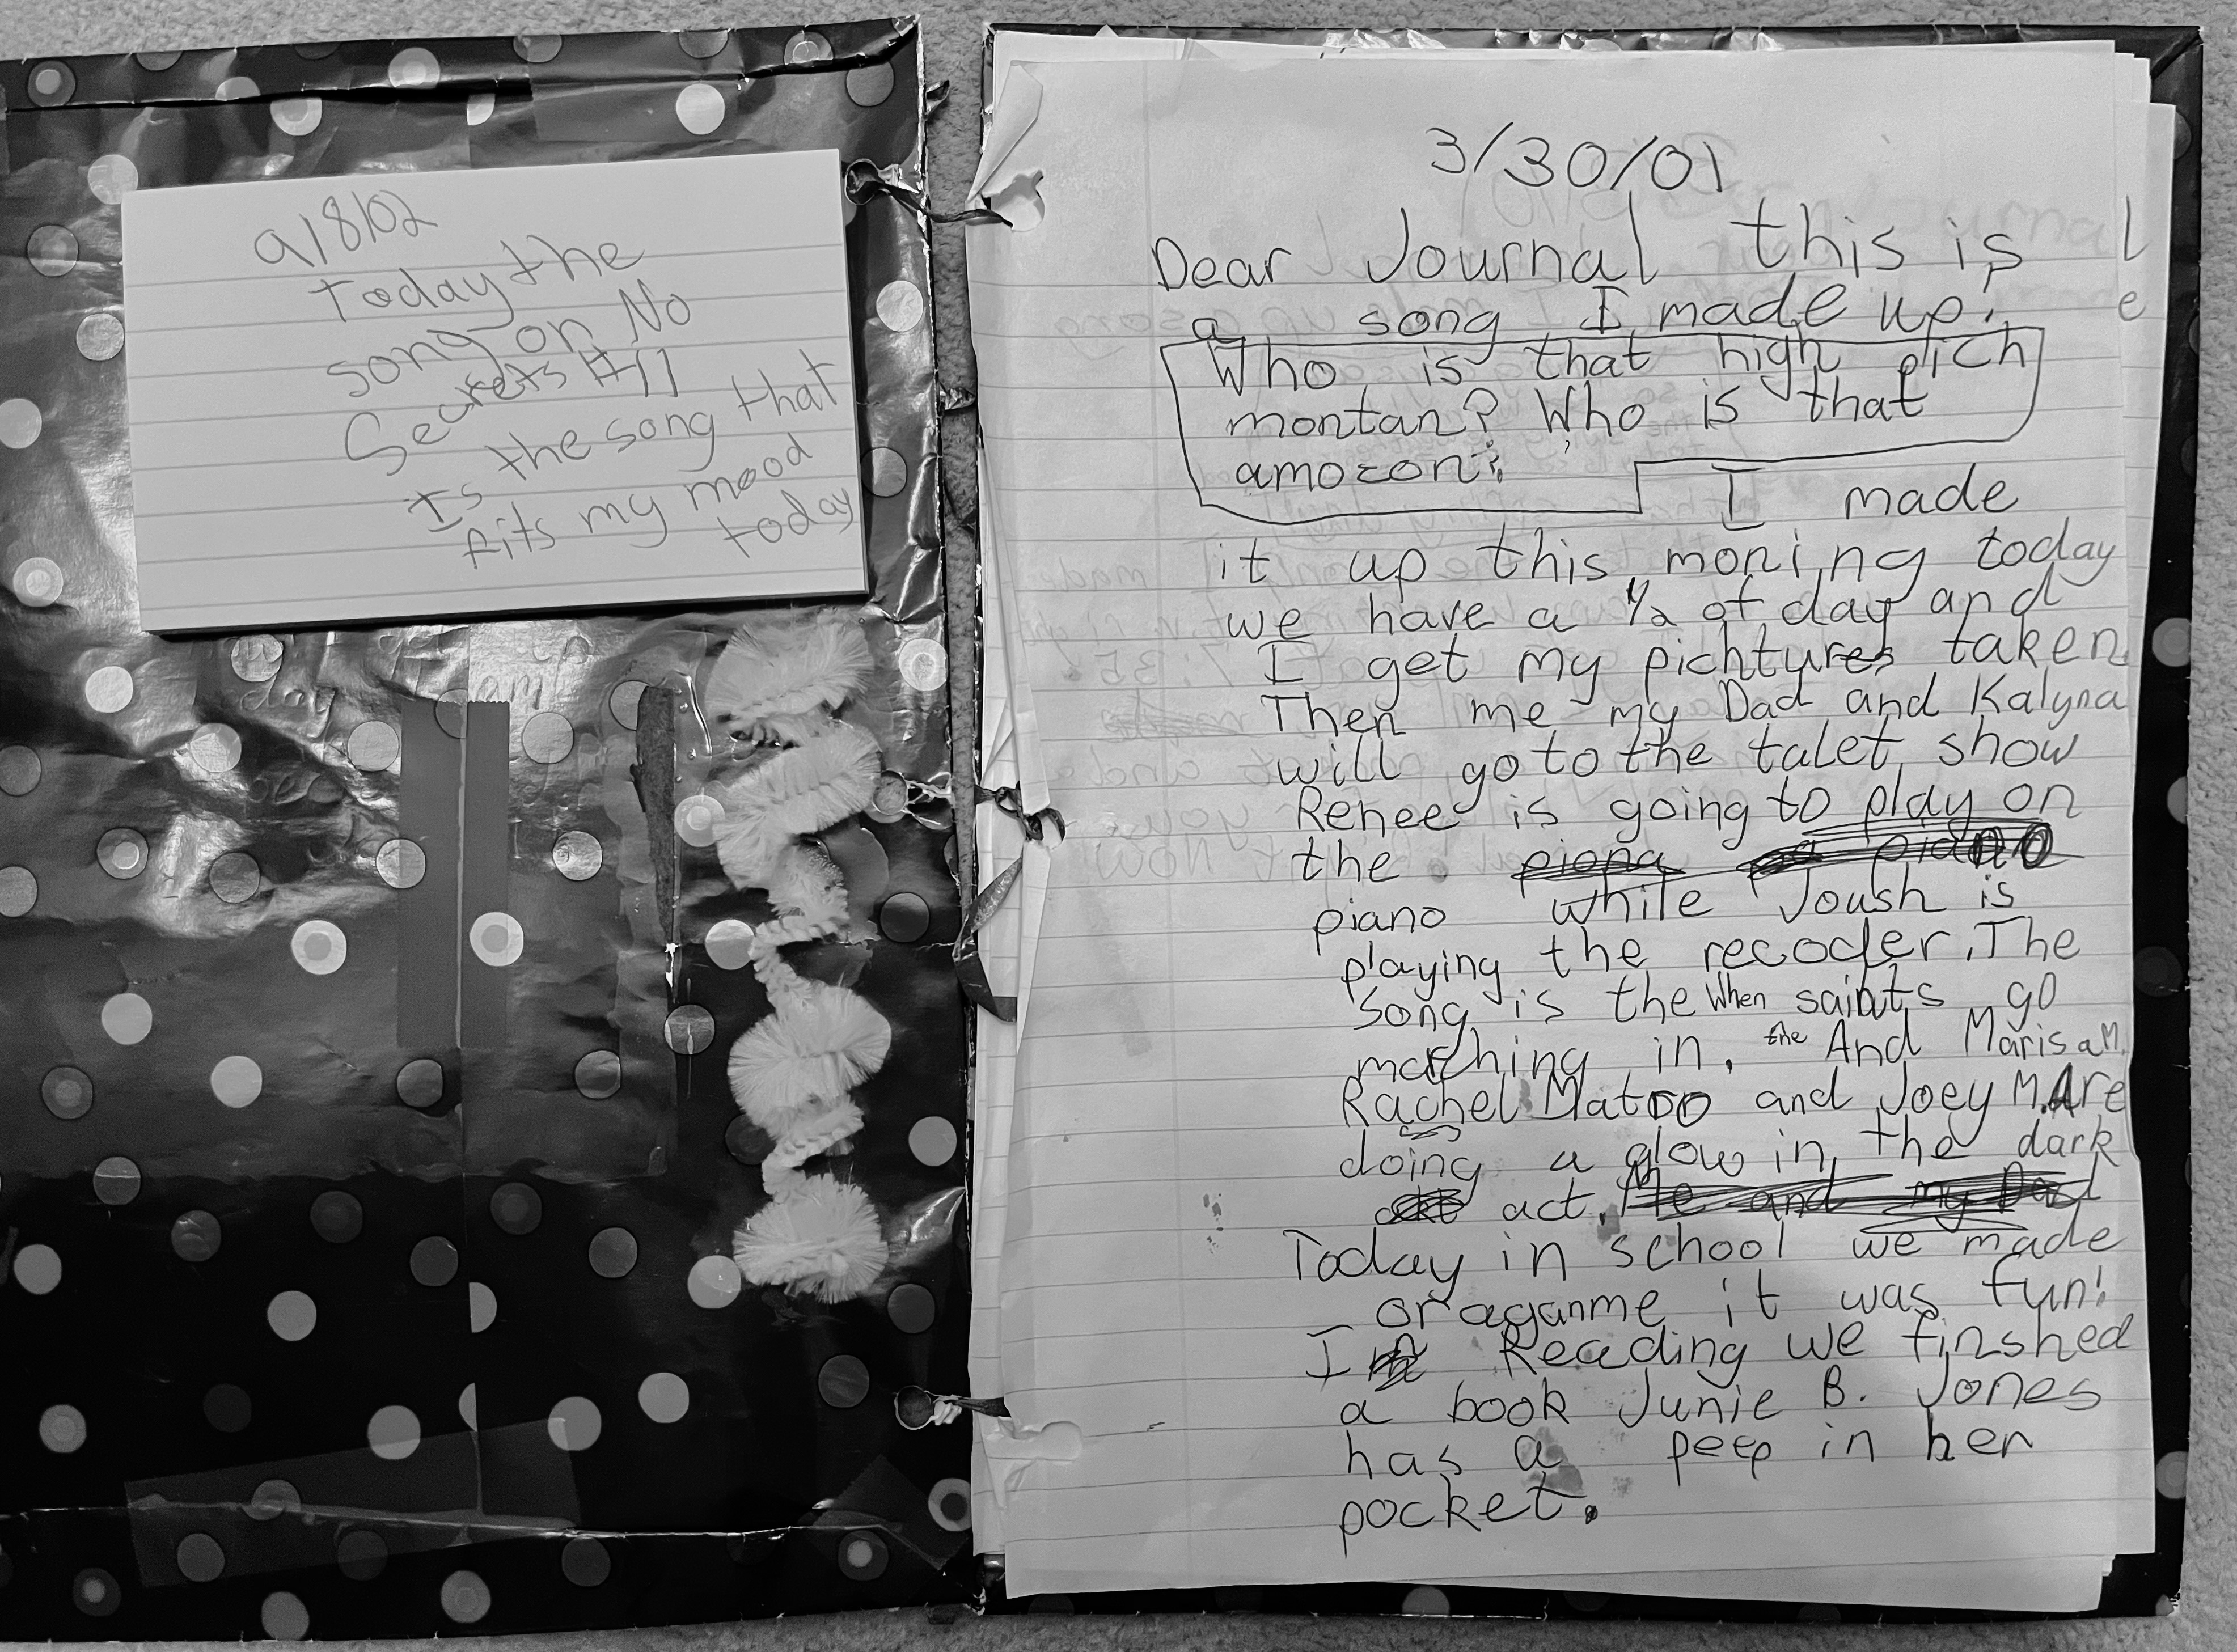 9/8/02
Today the
song on No
Secrets #11
Is the song that
fits my mood
today
3/30/01
Dear Journal this is
a song I made up!
Who is that high pich
montan? Who is that
amozon?
I made
it up this moning today
we have a 1/2 of day and
I get my pichtures taken
Then me my Dad and Kalyna
will go to the talet show
Renee is going to play on
the piona piano
piano while Joush is
playing the recoder. The
song is the When saints go
marching in. the And Marisa M.
Rachel Matoo and Joey M. Are
doing a glow in the dark
act. Me and my Dad
Today in school we made
oraganme it was fun!
In Reading we finshed
a book Junie B. Jones
has a peep in her
pocket.